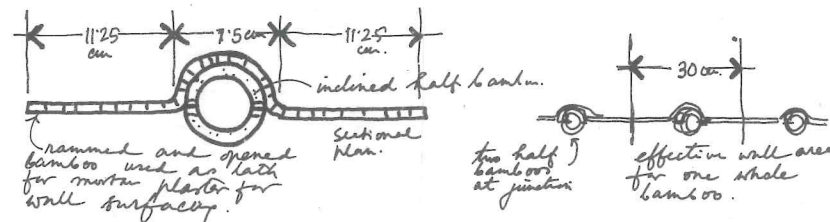 11.25 cm
7.5 cm
11.25 cm.
inclined half bamboo.
sectional
plan.
rammed and opened
bamboo used as lath
for mortar plaster for
wall surfaces.
30 cm.
two half
bamboos
at junction
effective wall area
for one whole
bamboo.